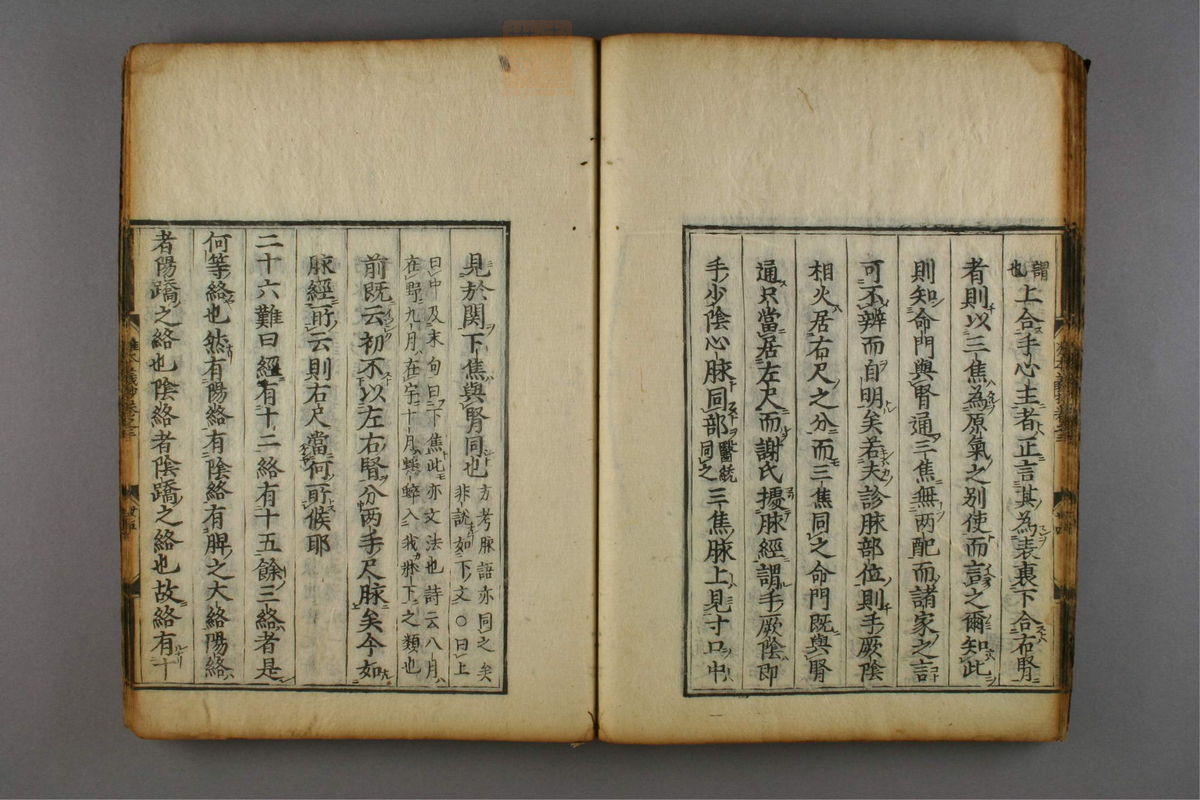 謂
也
上合手心主者正言其為表裏下合右腎
者則以三焦為原氣之別使而言之爾知此
則知命門與腎通三焦無両配而諸家之言
可不辨而自明矣若夫診脉部位則手厥陰
相火居右尺之分而三焦同之命門既與腎
通只當居左尺而謝氏擾脉經謂手厥陰即
手少陰心脉同部
醫統
同之
三焦脉上見寸口中
見於関下焦與腎同也
方考脉語亦同之矣
非説如下文○曰上
曰中及末句曰下焦此亦文法也詩云八月
在野九月在宇十月蟋蟀入我牀下之類也
前既云初不以左右腎分両手尺脉矣今如
脉經所云則右尺當何所候耶
二十六難曰經有十二絡有十五餘三絡者是
何等絡也然有陽絡有陰絡有脾之大絡陽絡
者陽蹻之絡也陰絡者陰蹻之絡也故絡有十